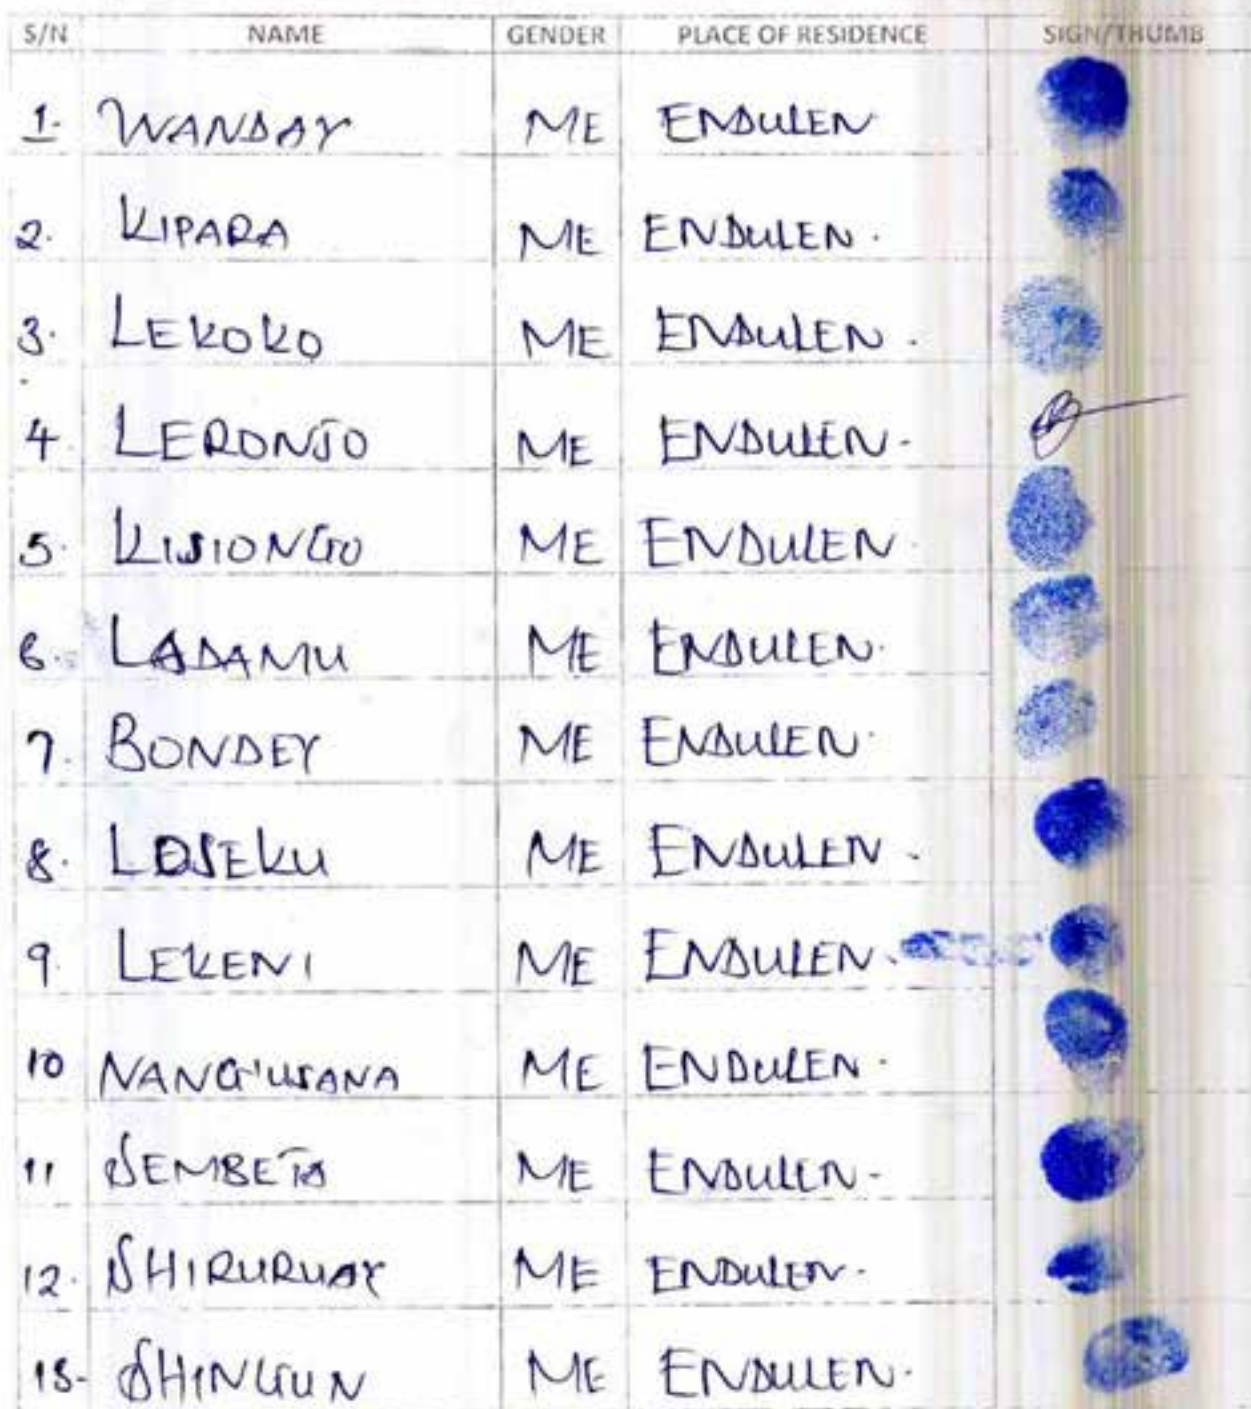 S/N NAME GENDER PLACE OF RESIDENCE SIGN/THUMB
1. WANDAY ME ENDULEN
2. KIPARA ME ENDULEN.
3. LEKOKO ME ENDULEN.
4. LERONJO ME ENDULEN.
5. KISIONGO ME ENDULEN.
6. LADAMU ME ENDULEN.
7. BONDEY ME ENDULEN.
8. LOSEKU ME ENDULEN.
9. LEKENI ME ENDULEN.
10 ME ENDULEN.
11 SEMBETA ME ENDULEN.
12. SHIRURUAY ME ENDULEN.
13. SHINGUN ME ENDULEN.